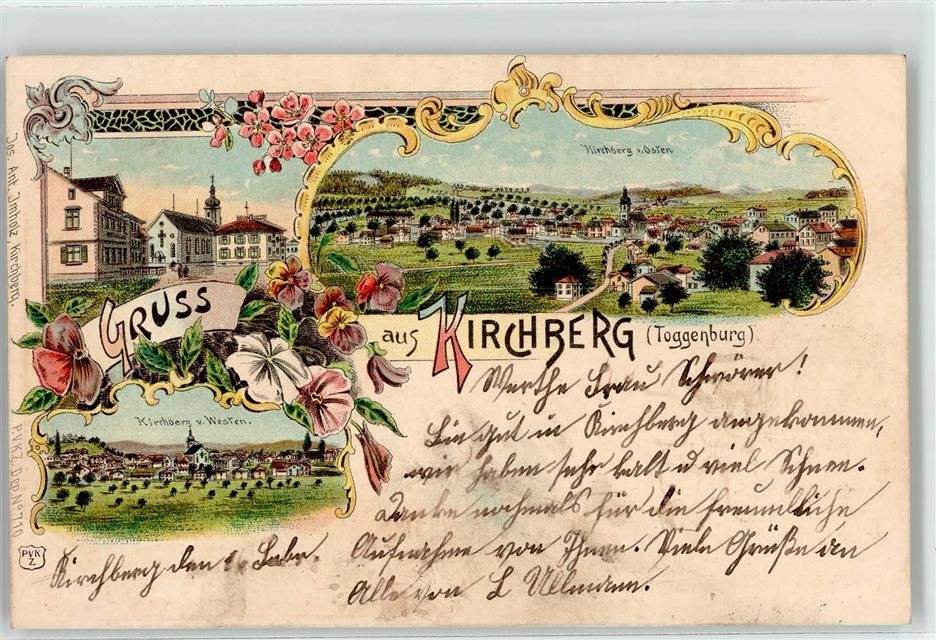 Kirchberg v. Osten
GRUSS
aus KIRCHBERG (Toggenburg).
Kirchberg v. Westen.
Jos. Ant. Imholz, Kirchberg.
PVKZ, DRP No 710
PVK
Z
Werthe Frau Schwörer!
Bin gut in Kirchberg angekommen,
wir haben sehr kalt u viel Schnee.
Danke nochmals für die freundliche
Aufnahme von Ihnen. Viele Grüße an
Alle von L Ullmann.
Kirchberg den Febr.